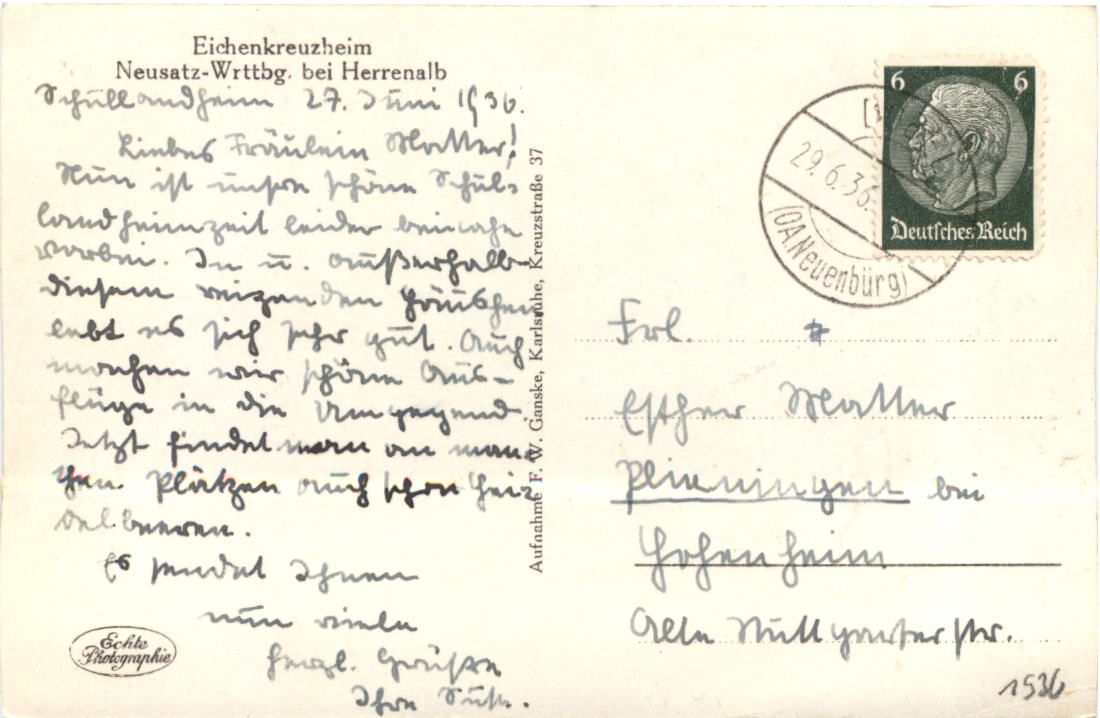 Eichenkreuzheim
Neusatz-Wrttbg. bei Herrenalb
Schullandheim 27. Juni 1936.
Liebes Fräulein Matter!
Nun ist unsre schöne Schul-
landheimzeit leider beinahe
vorbei. In u. außerhalb
diesem reizenden Häuschen
lebt es sich sehr gut. Auch
machen wir schöne Aus-
flüge in die Umgegend.
Jetzt findet man an man-
chen Plätzen auch schon Hei-
delbeeren.
Es sendet Ihnen
nun viele
herzl. Grüße
Ihre
Echte
Photographie
Aufnahme F. W. Ganske, Karlsruhe, Kreuzstraße 37
6 6
Deutsches Reich
29.6.36
(OA.Neuenbürg)
Frl.
Esther Matter
Plieningen bei
Hohenheim
Alte Stuttgarterstr.
1936